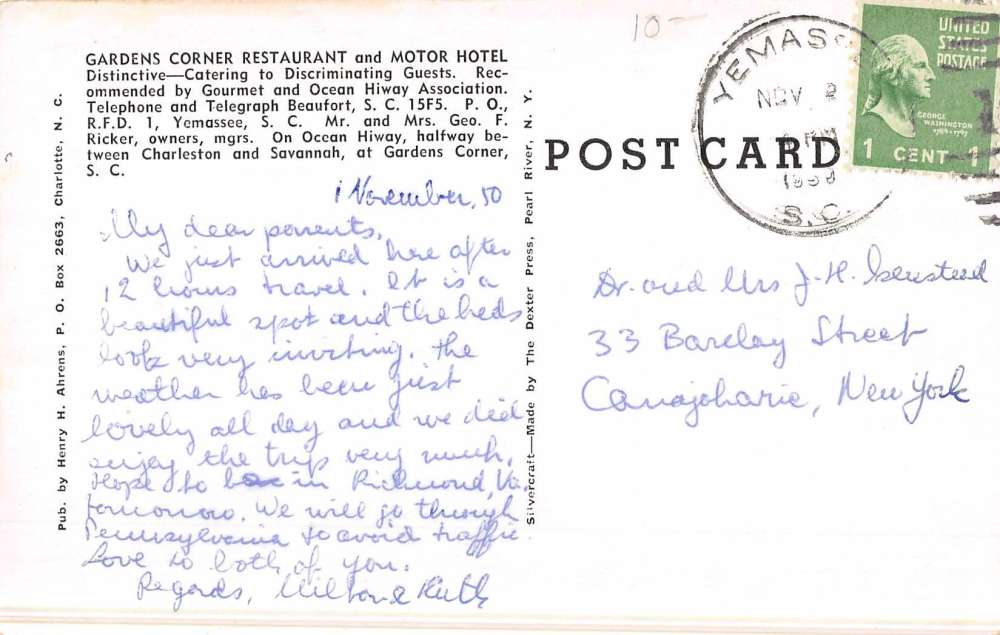 GARDENS CORNER RESTAURANT and MOTOR HOTEL
Distinctive—Catering to Discriminating Guests. Rec-
ommended by Gourmet and Ocean Hiway Association.
Telephone and Telegraph Beaufort, S. C. 15F5. P. O.,
R.F.D. 1, Yemassee, S. C. Mr. and Mrs. Geo. F.
Ricker, owners, mgrs. On Ocean Hiway, halfway be-
tween Charleston and Savannah, at Gardens Corner,
S. C.
1 November, 50
My dear parents,
We just arrived here after
12 hours travel. It is a
beautiful spot and the beds
look very inviting. The
weather has been just
lovely all day and we did
enjoy the trip very much.
Hope to be in Richmond, Va.
tomorrow. We will go through
Pennsylvania to avoid traffic.
Love to both of you.
Regards, Milton & Ruth
Pub. by Henry H. Ahrens, P. O. Box 2663, Charlotte, N. C.
Silvercraft—Made by The Dexter Press, Pearl River, N. Y.
10-
POST CARD
NOV 2
1950
S.C.
UNITED
STATES
POSTAGE
GEORGE
WASHINGTON
1789-1797
1 CENT 1
Dr. and Mrs J. H.
33 Barclay Street
Canajoharie, New York